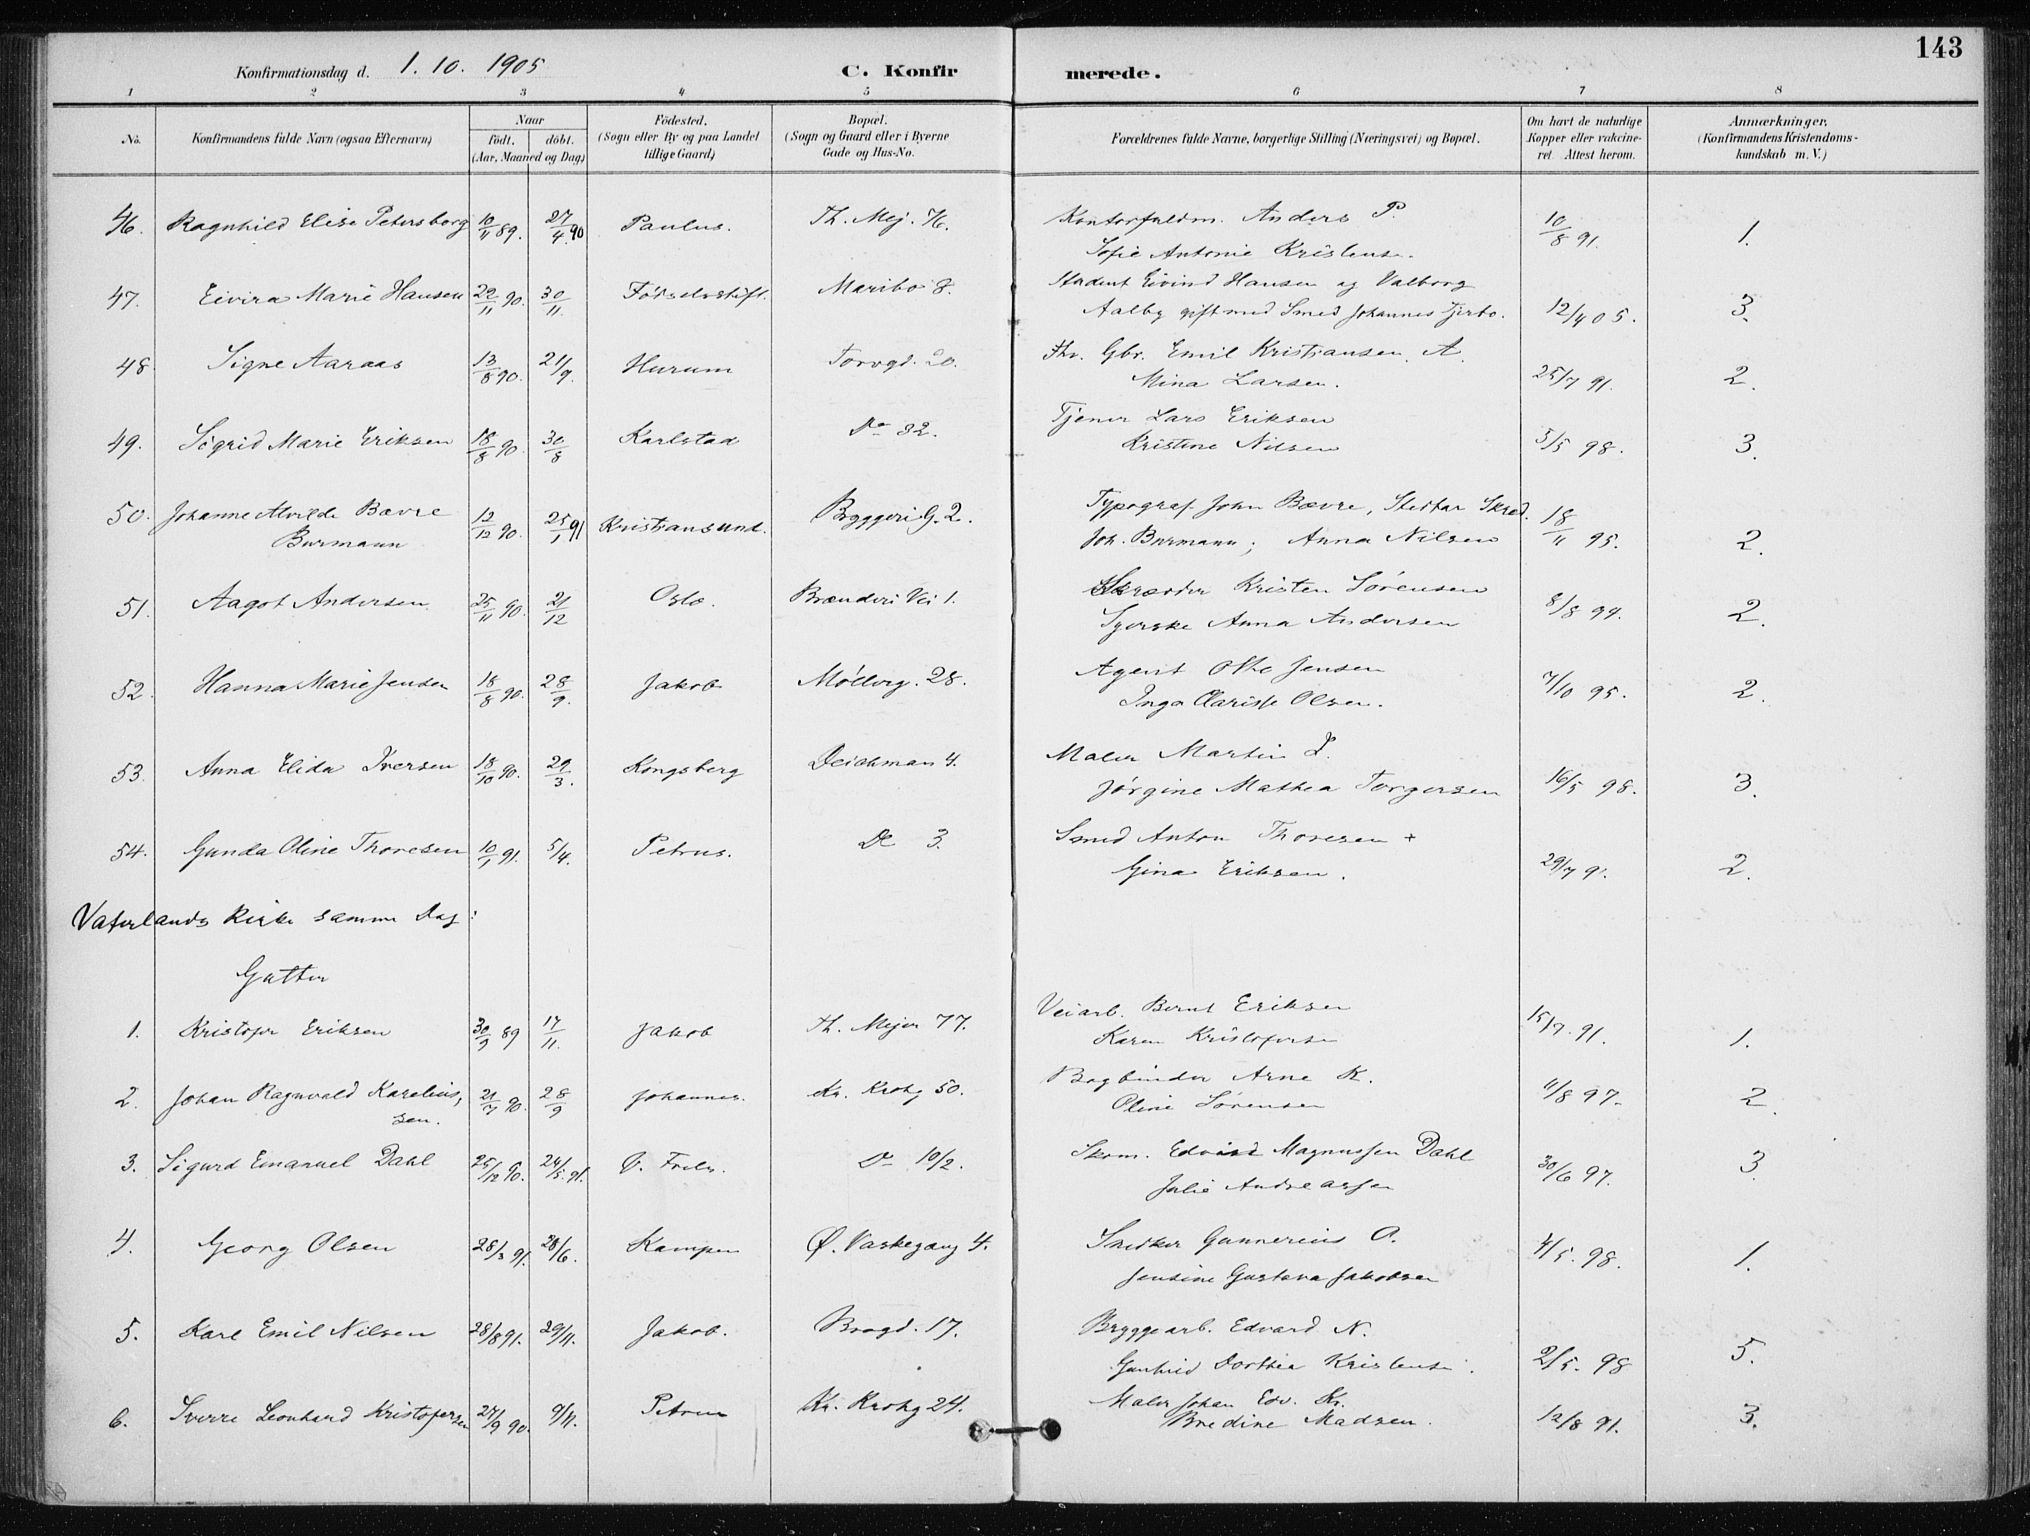 143
Konfirmationsdag d. 1. 10. 1905
C. Konfir merede.
1 2 3 4 5 6 7 8
No. Konfirmandens fulde Navn (ogsaa Efternavn) Naar født. døbt. (Aar, Maaned og Dag) Fødested. (Sogn eller By og paa Landet tillige Gaard) Bopæl. (Sogn og Gaard eller i Byerne Gade og Hus-No. Forældrenes fulde Navne, borgerlige Stilling (Næringsvei) og Bopæl. Om havt de naturlige Kopper eller vakcineret. Attest herom. Anmærkninger, (Konfirmandens Kristendomskundskab m. V.)
46. Ragnhild Elise Petersborg 10/11 89. 27/4 90 Paulus. Th. Mej. 76. Kontorfuldm. Anders P. 10/8 91. 1.
Sofie Antonie Kristense.
47. Eivira Marie Hansen 29/11 90. 30/11. Fødselsstift. Maribo 8. Student Eivind Hansen og Valborg
Aalby gift med Smed Johannes Tjerbo. 12/4 05. 3.
48. Signe Aaraas 13/8 90. 21/9. Hurum Torvgd. 20. Hr. Gbr. Emil Kristiansen A.
Mina Larsen. 25/7 91. 2.
49. Sigrid Marie Eriksen 18/8 90. 30/8 Karlstad Do 32. Tjener Lars Eriksen
Kristine Nilsen 5/5 98. 3.
50. Johanne Alvilde Bævre 12/12 90. 25/1 91 Kristiansund. Bryggeri G. 2. Typograf John Bævre, Stedfar Skred.
Burmann Joh. Burmann; Anna Nilsen 18/11 95. 2.
51. Aagot Andersen 25/11 90. 21/12 Oslo. Brænderi Vei 1. Skræder Kristen Sørensen
Syerske Anna Andersen 8/8 99. 2.
52. Hanna Marie Jensen 18/8 90. 28/9. Jakob Møllerg. 28. Agent Otto Jensen
Inga Clarisse Olsen. 7/10 95. 2.
53. Anna Elida Iversen 18/10 90. 29/3. Kongsberg Deichman 4. Maler Martin I.
Jørgine Mathea Torgersen 16/5 98. 3.
54. Gunda Oline Thoresen 10/1 91. 5/4. Petrus. Do 3. Smed Anton Thoresen +
Gina Eriksen. 29/7 91. 2.
Vaterlands Kirke samme Dag:
Gutter
1. Kristofer Eriksen 30/9 89 17/11. Jakob Th. Mejer 77. Veiarb. Bernt Eriksen
Karen Kristoferse 15/7. 91. 1.
2. Johan Ragnvald Karelius, 21/7 90. 28/9 Johannes. Kr. Krohg 50. Bogbinder Arne K.
sen. Oline Sørensen 11/8 97. 2.
3. Sigurd Emanuel Dahl 25/12 90. 24/5. 91. V. Frels. Do 10/2. Skom. Edvind Magnussen Dahl
Julie Andreassen 30/6 97. 3.
4. Georg Olsen 28/3 91. 28/6. Kampen Ø. Vaskegang 4. Snedker Gunnerius O.
Jensine Gustava Jakobsen 4/5. 98. 1.
5. Karl Emil Nilsen 28/8 91. 29/11. Jakob. Brogd. 17. Bryggearb. Edvard N.
Gunhild Dorthea Kristense. 2/5. 98 5.
6. Sverre Leonhard Kristofersen 27/9 90. 9/11. Petrus Kr. Krohg 24. Maler Johan Edv. Kr.
Bredine Madsen. 12/8 91. 3.